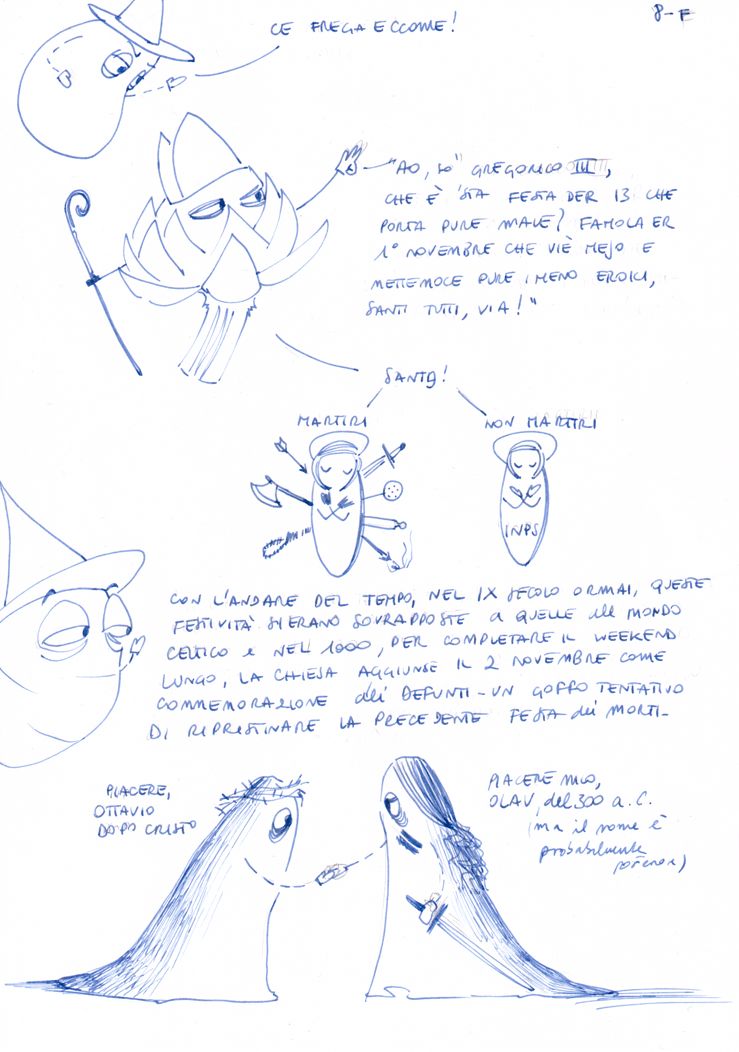 8-F
CE FREGA ECCOME!
"AO, SO' GREGORIO III,
CHE È 'STA FESTA DER 13 CHE
PORTA PURE MALE? FAMOLA ER
1° NOVEMBRE CHE VIÈ MEJO E
METTEMOCE PURE I MENO EROICI,
SANTI TUTTI, VIA!"
SANTI!
MARTIRI
NON MARTIRI
INPS
CON L'ANDARE DEL TEMPO, NEL IX SECOLO ORMAI, QUESTE
FESTIVITÀ SI ERANO SOVRAPPOSTE A QUELLE del MONDO
CELTICO e NEL 1000, PER COMPLETARE IL WEEKEND
LUNGO, LA CHIESA AGGIUNSE IL 2 NOVEMBRE COME
COMMEMORAZIONE dei DEFUNTI - UN GOFFO TENTATIVO
DI RIPRISTINARE LA PRECEDENTE FESTA dei MORTI-
PIACERE,
OTTAVIO
DOPO CRISTO
PIACERE MIO,
OLAV, del 300 a.C.
(ma il nome è
probabilmente